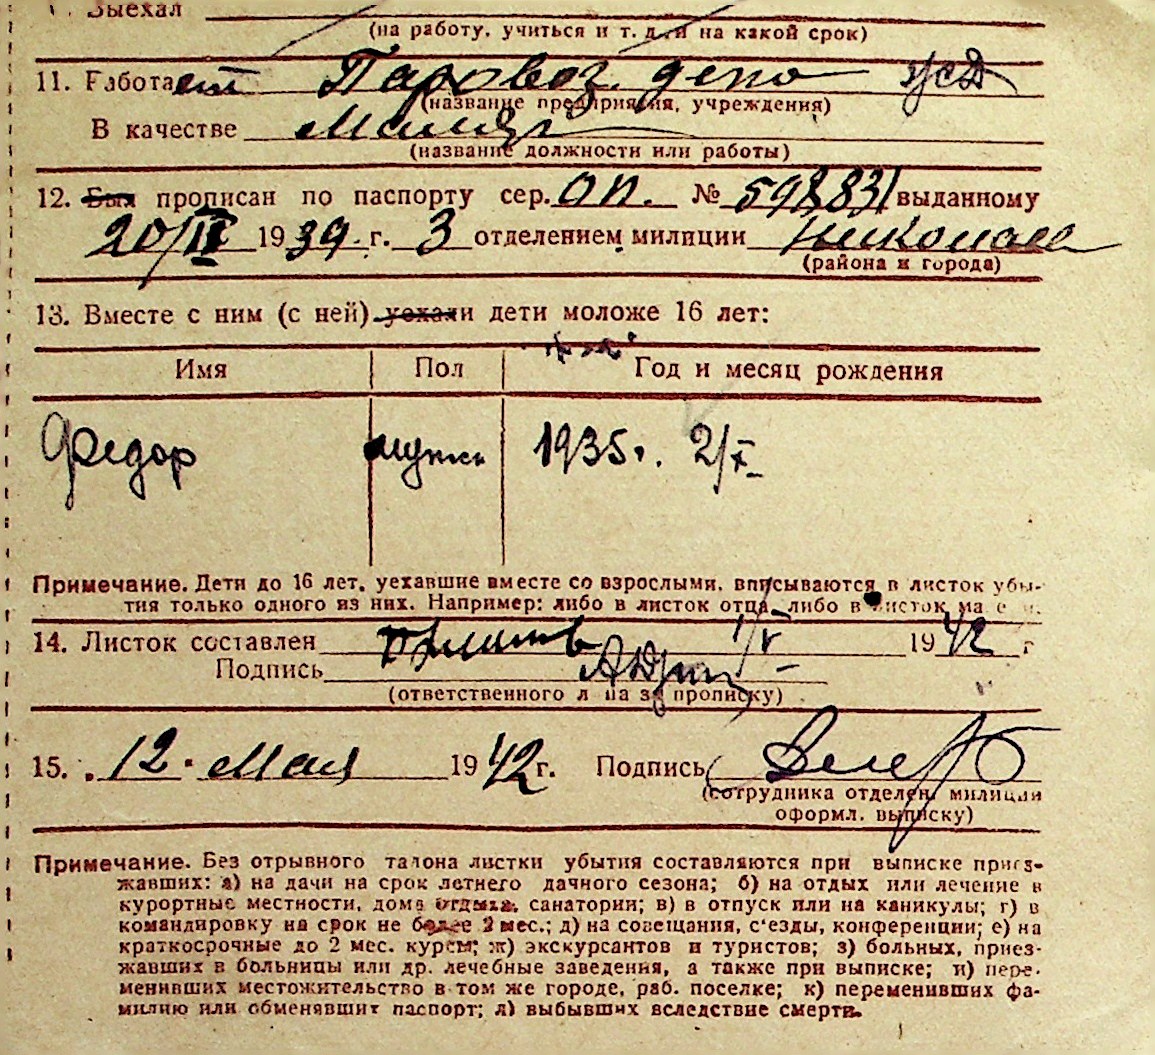 Выехал
(на работу, учиться и т. д. и на какой срок)
11. Работает Паровоз. депо
(название предприятия, учреждения)
В качестве Маляр
(название должности или работы)
12. Был прописан по паспорту сер. ОП. № 598831 выданному
20/IX 1939. г. 3 отделением милиции Николаев
(района и города)
13. Вместе с ним (с ней) уехали дети моложе 16 лет:
Имя Пол Год и месяц рождения
Федор мужск 1935г. 2/X
Примечание. Дети до 16 лет, уехавшие вместе со взрослыми, вписываются в листок убы-
тия только одного из них. Например: либо в листок отца, либо в листок ма е и.
14. Листок составлен 1/V 1942 г
Подпись
(ответственного л ца за прописку)
15. 12. Мая 1942 г. Подпись
(сотрудника отделен. милиции
оформл. выписку)
Примечание. Без отрывного талона листки убытия составляются при выписке приез-
жавших: а) на дачи на срок летнего дачного сезона; б) на отдых или лечение в
курортные местности, дома отдыха, санатории; в) в отпуск или на каникулы; г) в
командировку на срок не более 2 мес.; д) на совещания, с'езды, конференции; е) на
краткосрочные до 2 мес. курсы; ж) экскурсантов и туристов; з) больных, приез-
жавших в больницы или др. лечебные заведения, а также при выписке; и) пере-
менивших местожительство в том же городе, раб. поселке; к) переменивших фа-
милию или обменявших паспорт; л) выбывших вследствие смерти.